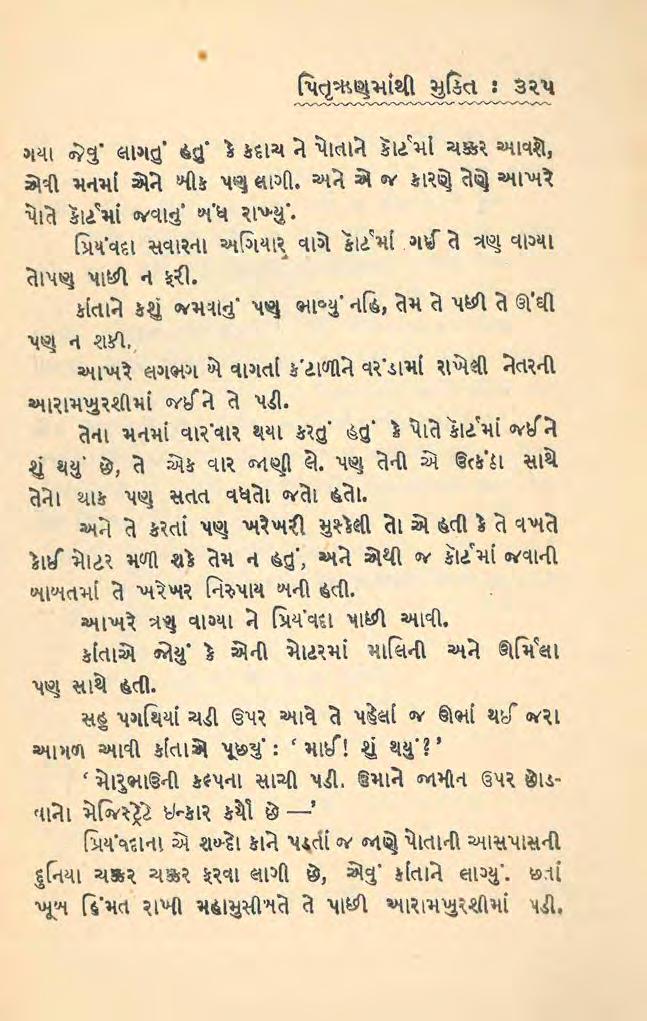 પિતૃઋણમાંથી મુકિત : ૩૨૫
ગયા જેવું લાગતું હતું કે કદાચ ને પોતાને કૉર્ટમાં ચક્કર આવશે,
એવી મનમાં એને બીક પણ લાગી. અને એ જ કારણે તેણે આખરે
પોતે કૉર્ટમાં જવાનું બંધ રાખ્યું.
પ્રિયંવદા સવારના અગિયાર વાગે કૉર્ટમાં ગઈ તે ત્રણ વાગ્યા
તોપણ પાછી ન ફરી.
કાંતાને કશું જમવાનું પણ ભાવ્યું નહિ, તેમ તે પછી તે ઊંઘી
પણ ન શકી.
આખરે લગભગ બે વાગતાં કંટાળીને વરંડામાં રાખેલી નેતરની
આરામખુરશીમાં જઈને તે પડી.
તેના મનમાં વારંવાર થયા કરતું હતું કે પોતે કૉર્ટમાં જઈને
શું થયું છે, તે એક વાર જાણી લે. પણ તેની એ ઉત્કંઠા સાથે
તેનો થાક પણ સતત વધતો જતો હતો.
અને તે કરતાં પણ ખરેખરી મુશ્કેલી તો એ હતી કે તે વખતે
કોઈ મોટર મળી શકે તેમ ન હતું, અને એથી જ કૉર્ટમાં જવાની
બાબતમાં તે ખરેખર નિરુપાય બની હતી.
આખરે ત્રણ વાગ્યા ને પ્રિયંવદા પાછી આવી.
કાંતાએ જોયું કે એની મોટરમાં માલિની અને ઊર્મિલા
પણ સાથે હતી.
સહુ પગથિયાં ચડી ઉપર આવે તે પહેલાં જ ઊભાં થઈ જરા
આગળ આવી કાંતાએ પૂછયું : ‘ માઈ! શું થયું?’
‘ મોરુભાઉની કલ્પના સાચી પડી. ઉમાને જામીન ઉપર છોડ-
વાનો મેજિસ્ટ્રેટે ઇન્કાર કર્યો છે —’
પ્રિયંવદાના એ શબ્દો કાને પડતાં જ જાણે પોતાની આસપાસની
દુનિયા ચક્કર ચક્કર ફરવા લાગી છે, એવું કાંતાને લાગ્યું. છતાં
ખૂબ હિંમત રાખી મહામુસીબતે તે પાછી આરામખુરશીમાં પડી.